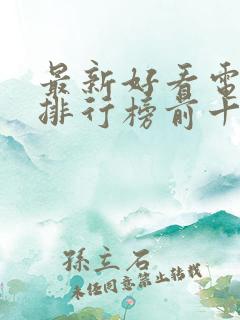 最新好看電
排行榜前十
孫立石
未经同意禁止转载